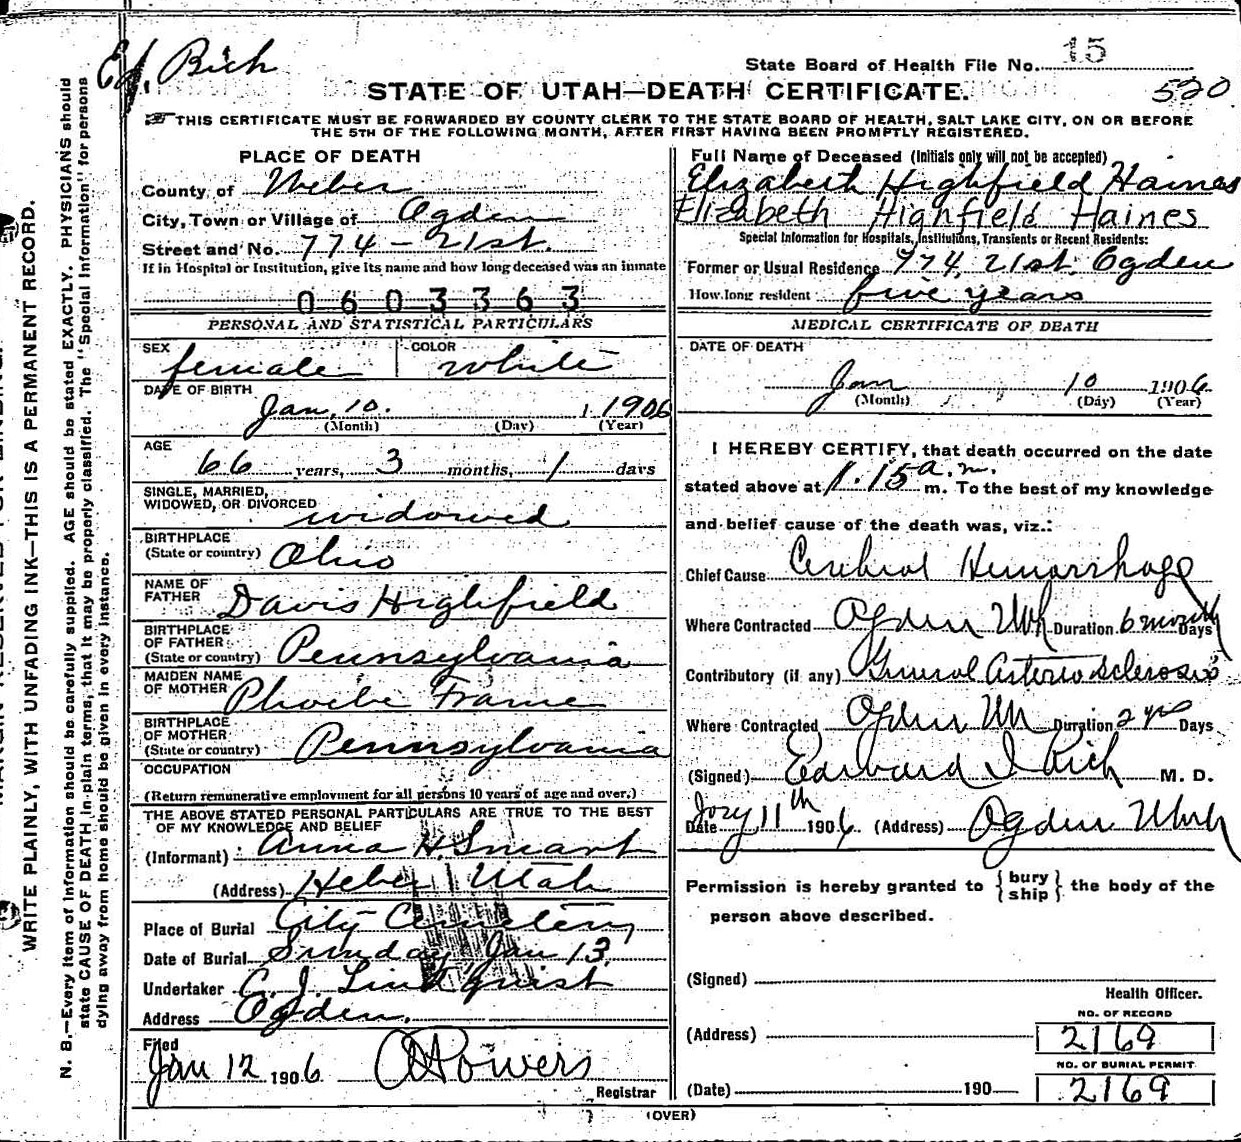 Ed. Rich
State Board of Health File No. 15
STATE OF UTAH—DEATH CERTIFICATE.
520
THIS CERTIFICATE MUST BE FORWARDED BY COUNTY CLERK TO THE STATE BOARD OF HEALTH, SALT LAKE CITY, ON OR BEFORE
THE 5TH OF THE FOLLOWING MONTH, AFTER FIRST HAVING BEEN PROMPTLY REGISTERED.
WRITE PLAINLY, WITH UNFADING INK—THIS IS A PERMANENT RECORD.
N. B.—Every item of information should be carefully supplied. AGE should be stated EXACTLY. PHYSICIANS should
state CAUSE OF DEATH in plain terms, that it may be properly classified. The "Special Information" for persons
dying away from home should be given in every instance.
PLACE OF DEATH
County of Weber
City, Town or Village of Ogden
Street and No. 774 - 21st.
If in Hospital or Institution, give its name and how long deceased was an inmate
0603363
PERSONAL AND STATISTICAL PARTICULARS
SEX female COLOR white
DATE OF BIRTH
Jan. 10. 1 1906
(Month) (Day) (Year)
AGE
66 years, 3 months, 1 days
SINGLE, MARRIED,
WIDOWED, OR DIVORCED widowed
BIRTHPLACE
(State or country) Ohio
NAME OF
FATHER Davis Highfield
BIRTHPLACE
OF FATHER
(State or country) Pennsylvania
MAIDEN NAME
OF MOTHER Phoebe Frame
BIRTHPLACE
OF MOTHER
(State or country) Pennsylvania
OCCUPATION
(Return remunerative employment for all persons 10 years of age and over.)
THE ABOVE STATED PERSONAL PARTICULARS ARE TRUE TO THE BEST
OF MY KNOWLEDGE AND BELIEF
(Informant) Anna H. Smart
(Address) Heber Utah
Place of Burial City Cemetery
Date of Burial Sunday Jan 13
Undertaker C. J. Lindquist
Address Ogden.
Filed
Jan 12 1906 Powers
Registrar
Full Name of Deceased (Initials only will not be accepted)
Elizabeth Highfield Haines
Elizabeth Highfield Haines
Special Information for Hospitals, Institutions, Transients or Recent Residents:
Former or Usual Residence 774, 21st. Ogden
How long resident five years
MEDICAL CERTIFICATE OF DEATH
DATE OF DEATH
Jan 10 1906
(Month) (Day) (Year)
I HEREBY CERTIFY, that death occurred on the date
stated above at 1.15 a.m. m. To the best of my knowledge
and belief cause of the death was, viz.:
Chief Cause Cerebral Hemorrhage
Where Contracted Ogden Utah Duration 6 months Days
Contributory (if any) General Arterio sclerosis
Where Contracted Ogden Ut Duration 2 yrs Days
(Signed) Edward I Rich M. D.
Date Jany 11th 1906 (Address) Ogden Utah
Permission is hereby granted to {bury ship} the body of the
person above described.
(Signed)
Health Officer.
(Address)
NO. OF RECORD
2169
NO. OF BURIAL PERMIT
2169
(Date) 190
(OVER)